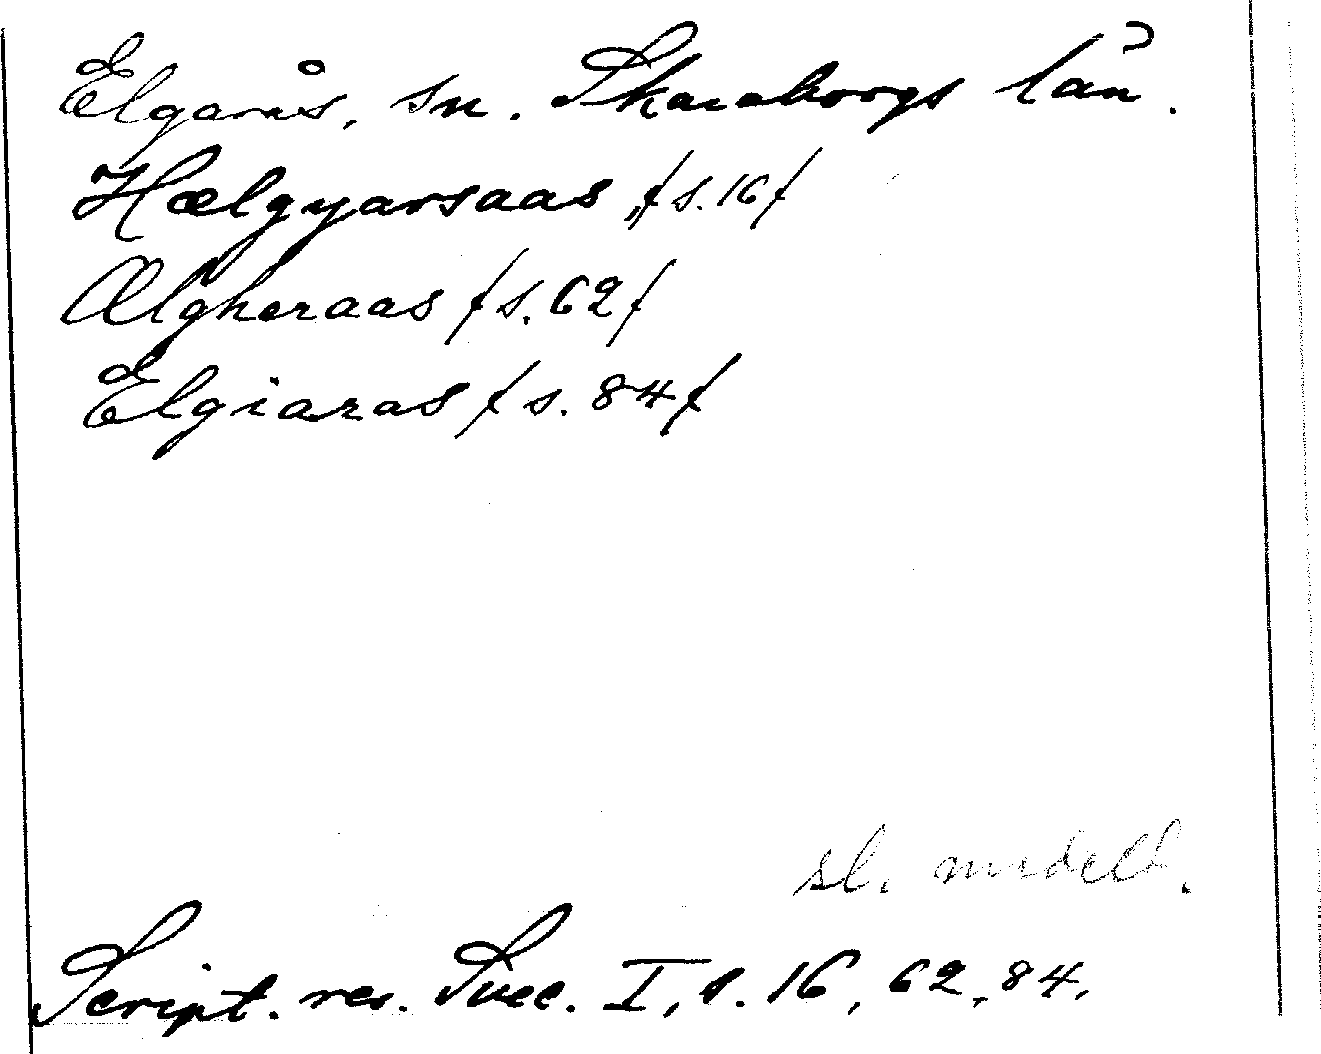 Elgarås, sn. Skaraborgs län.
Hælgyarsaas /s. 16/
Ælgheraas /s. 62/
Elgiaras /s. 84/
sl. medelt.
Script. rer. Svec. I, s. 16, 62, 84.